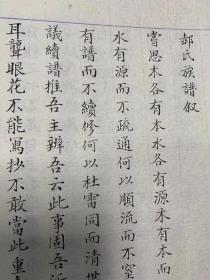 郝氏族譜叙
嘗思木各有本水各有源木有本而
水有源而不疏通何以順流而不窒
有譜而不續修何以杜雷同而清世
議續譜推吾主辦吾云此事固吾
耳聾眼花不能寫抄不敢當此重